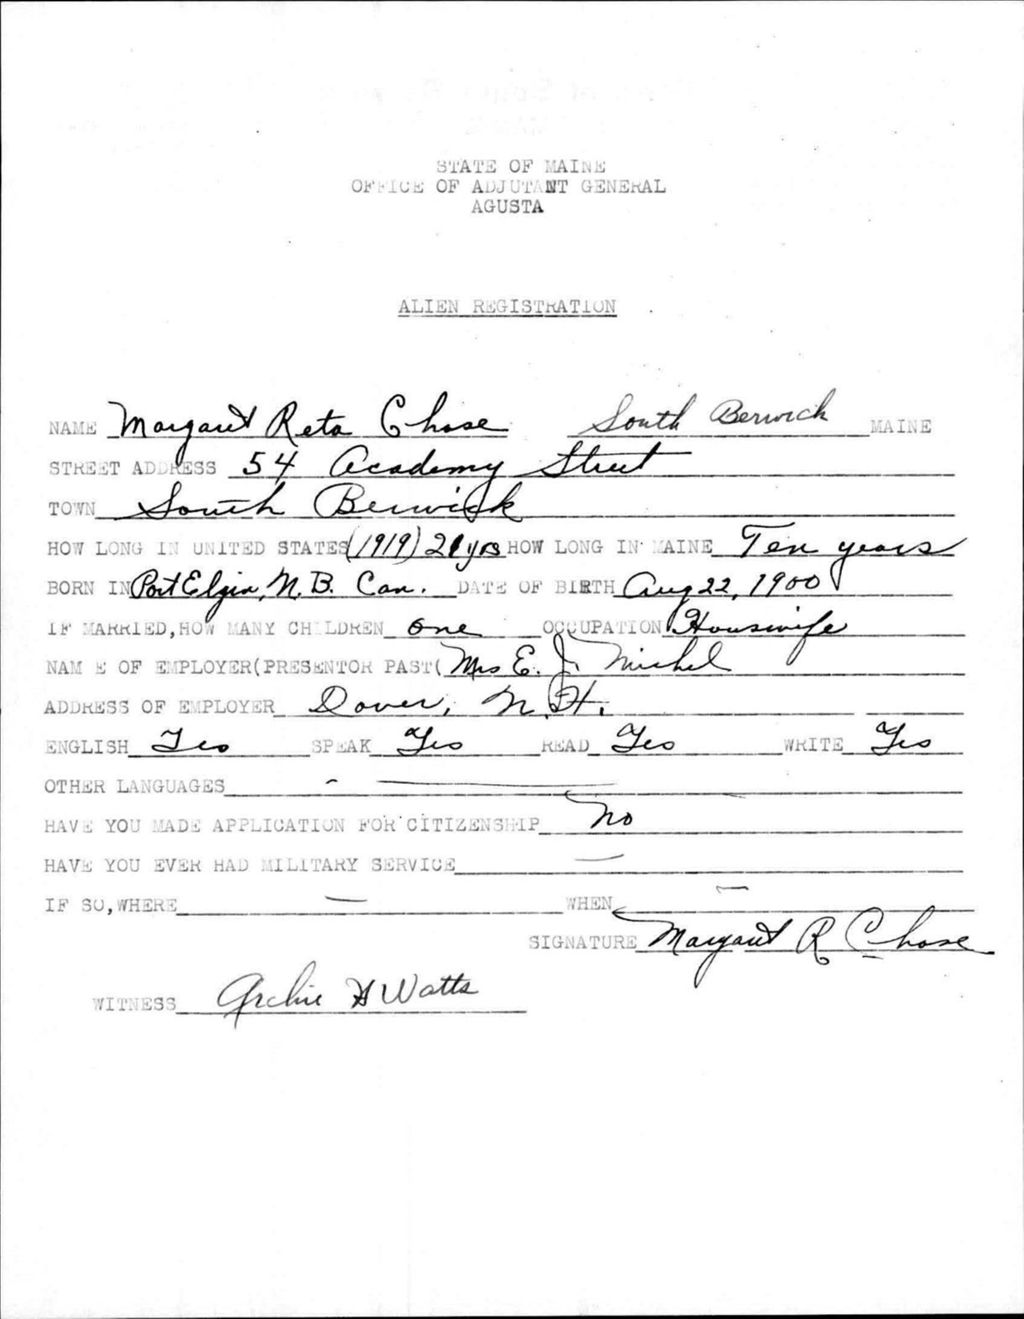 STATE OF MAINE
OFFICE OF ADJUTANT GENERAL
AGUSTA
ALIEN REGISTRATION
NAME Margaret Reta Chase South Berwick MAINE
STREET ADDRESS 54 Academy Street
TOWN South Berwick
HOW LONG IN UNITED STATES (1919) 21 yrs HOW LONG IN MAINE Ten years
BORN IN Port Elgin, N.B. Can. DATE OF BIRTH Aug 22, 1900
IF MARRIED, HOW MANY CHILDREN one OCCUPATION Housewife
NAM E OF EMPLOYER(PRESENTOR PAST( Mrs E. J. Michel
ADDRESS OF EMPLOYER Dover, N.H.
ENGLISH Yes SPEAK Yes READ Yes WRITE Yes
OTHER LANGUAGES -
HAVE YOU MADE APPLICATION FOR CITIZENSHIP No
HAVE YOU EVER HAD MILITARY SERVICE —
IF SO, WHERE — WHEN —
SIGNATURE Margaret R Chase
WITNESS Archie H Watts